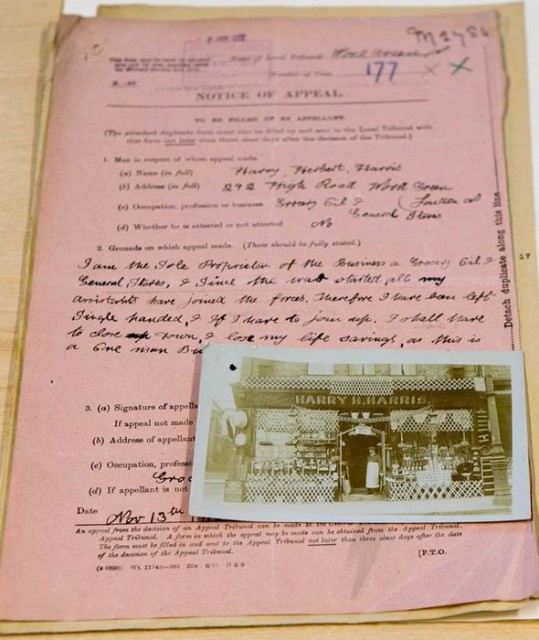 M 2486
Name of Local Tribunal Wood Green
Number of Case 177
NOTICE OF APPEAL.
TO BE FILLED UP BY APPELLANT.
(The attached duplicate form must also be filled up and sent to the Local Tribunal with
this form not later than three clear days after the decision of the Tribunal.)
1. Man in respect of whom appeal made.
(a) Name (in full) Harry, Herbert, Harris
(b) Address (in full) 292 High Road Wood Green
(c) Occupation, profession or business Grocery Oil &
General Stores
(d) Whether he is attested or not attested No
2. Grounds on which appeal made. (These should be fully stated.)
I am the Sole Proprietor of the Business a Grocery Oil &
General Stores, & Since the war started all my
assistants have joined the forces. Therefore I have been left
Single handed, & If I have to join up. I shall have
to close down, & lose my life savings, as this is
a One man Bu
3. (a) Signature of appella
If appeal not made
(b) Address of appellant
(c) Occupation, profess
Groc
(d) If appellant is not
Date Nov 13th
HARRY H. HARRIS
An appeal from the decision of an Appeal Tribunal can be made to the
Appeal Tribunal. A form in which the appeal may be made can be obtained from the Appeal
The form must be filled in and sent to the Appeal Tribunal not later than three clear days after the date
of the decision of the Appeal Tribunal.
[P.T.O.
Detach duplicate along this line